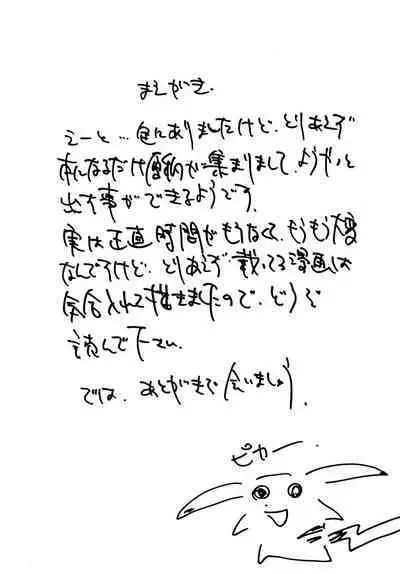 まえがき.
えーと…色々ありましたけど、とりあえず
本になるだけ原稿が集まりまして、ようやっと
出す事ができるようです。
実は正直時間がもうなく、もうも大変
なんですけど、とりあえず載ってる漫画は
気合入れて描きましたので、どうぞ
読んで下さい。
では、あとがきで会いましょう.
ピカー.